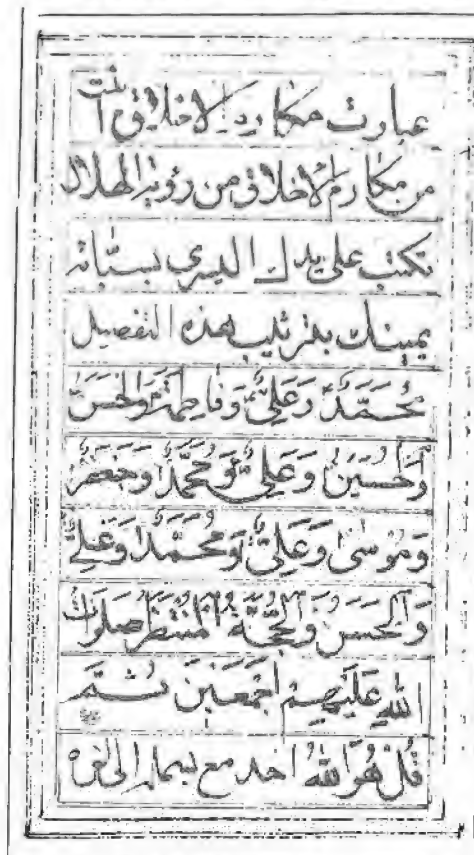 عبارت مكارم الاخلاق اينست
من مكارم الاخلاق من رؤية الهلال
تكتب على يدك اليسرى بسبّابة
يمينك بدين ترتيب هذه التفصيل
مُحَمَّدٌ وَعَلِيٌّ وَفَاطِمَةُ وَالْحَسَنُ
وَالْحُسَيْنُ وَعَلِيٌّ وَمُحَمَّدٌ وَجَعْفَرٌ
وَمُوسَىٰ وَعَلِيٌّ وَمُحَمَّدٌ وَعَلِيٌّ
وَالْحَسَنُ وَالْحُجَّةُ الْمُنْتَظَرُ صَلَوَاتُ
اللهِ عَلَيْهِمْ اَجْمَعِينَ ثُمَّ
قُلْ هُوَ اللهُ احد مع بسمله الى اخره